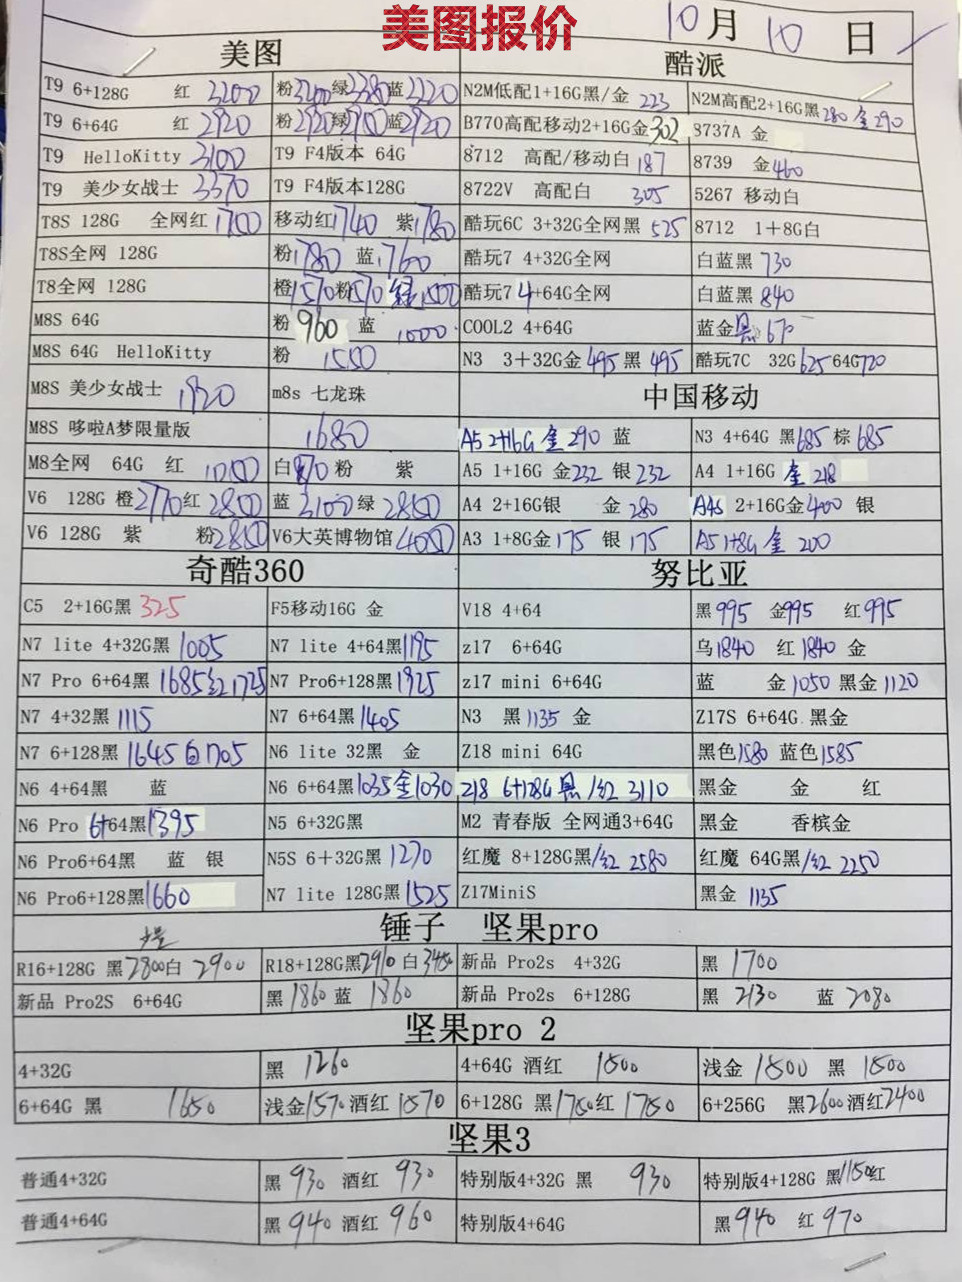 美图报价
10月10日
美图 酷派
T9 6+128G 红 3200 粉3200绿3380蓝3220 N2M低配1+16G黑/金 223 N2M高配2+16G黑280 金290
T9 6+64G 红 2920 粉2920 蓝2920 B770高配移动2+16G金302 8737A 金
T9 HelloKitty 3100 T9 F4版本 64G 8712 高配/移动白 187 8739 金460
T9 美少女战士 3370 T9 F4版本128G 8722V 高配白 305 5267 移动白
T8S 128G 全网红 1700 移动红1740 紫1780 酷玩6C 3+32G全网黑 525 8712 1+8G白
T8S全网 128G 粉1780 蓝1760 酷玩7 4+32G全网 白蓝黑 730
T8全网 128G 橙1570粉1570 绿1500 酷玩7 4+64G全网 白蓝黑 840
M8S 64G 粉 960 蓝 1000 COOL2 4+64G 蓝金黑 670
M8S 64G HelloKitty 粉 1550 N3 3+32G金 495 黑 495 酷玩7C 32G 625 64G720
M8S 美少女战士 1920 m8s 七龙珠 中国移动
M8S 哆啦A梦限量版 1680 A5 2+16G 金 290 蓝 N3 4+64G 黑685 棕 685
M8全网 64G 红 白 粉 紫 A5 1+16G 金232 银 232 A4 1+16G 金 218
V6 128G 橙2770红 2800 蓝 3100 绿 2850 A4 2+16G银 金 280 A4s 2+16G金400 银
V6 128G 紫 粉2850 V6大英博物馆 4050 A3 1+8G金175 银 175 A5 1+8G 金 200
奇酷360 努比亚
C5 2+16G黑 325 F5移动16G 金 V18 4+64 黑995 金995 红995
N7 lite 4+32G黑 1005 N7 lite 4+64黑1195 z17 6+64G 乌1840 红 1840 金
N7 Pro 6+64黑 1685红1725 N7 Pro6+128黑1925 z17 mini 6+64G 蓝 金1050 黑金1120
N7 4+32黑 1115 N7 6+64黑1405 N3 黑1135 金 Z17S 6+64G 黑金
N7 6+128黑 1645 白1705 N6 lite 32黑 金 Z18 mini 64G 黑色1580 蓝色1585
N6 4+64黑 蓝 N6 6+64黑1035金1030 Z18 6+128G 黑/红 3110 黑金 金 红
N6 Pro 6+64黑1395 N5 6+32G黑 M2 青春版 全网通3+64G 黑金 香槟金
N6 Pro6+64黑 蓝 银 N5S 6+32G黑 1270 红魔 8+128G黑/红 2580 红魔 64G黑/红 2250
N6 Pro6+128黑1660 N7 lite 128G黑1525 Z17MiniS 黑金 1135
锤子 坚果pro
R16+128G 黑2800白 2900 R18+128G黑2910 白3450 新品 Pro2s 4+32G 黑 1700
新品 Pro2S 6+64G 黑 1860 蓝 1860 新品 Pro2s 6+128G 黑 2130 蓝 2080
坚果pro 2
4+32G 黑 1260 4+64G 酒红 1500 浅金 1500 黑 1500
6+64G 黑 1650 浅金1570酒红1570 6+128G 黑1750红 1750 6+256G 黑2600酒红2400
坚果3
普通4+32G 黑 930 酒红 930 特别版4+32G 黑 930 特别版4+128G 黑/1150红
普通4+64G 黑 940 酒红 960 特别版4+64G 黑 940 红 970